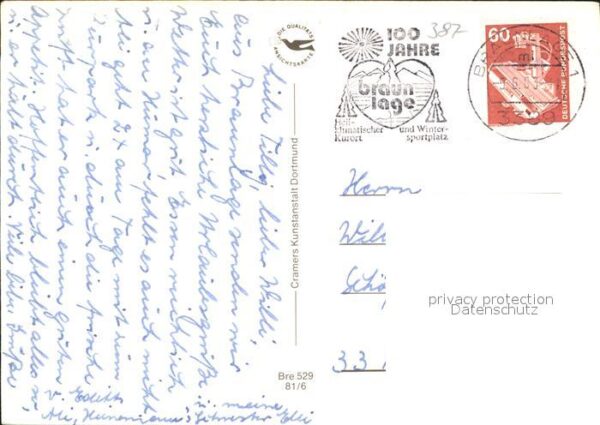 Liebe Tilly, lieber Willi,
aus Braunlage senden wir
Euch herzliche Urlaubsgrüße
Wetter ist gut, Essen reichlich
u. an Humor fehlt es auch nicht
gehe 2x am Tage mit zum
Kurpark u. durch die frische
Luft hat er auch einen guten
Appetit. Hoffentlich bleibt alles so,
Viele liebe Grüße
v. Edith
u. meine
Schwester Elli
DIE QUALITÄTS
ANSICHTSKARTE
Cramers Kunstanstalt Dortmund
Bre 529
81/6
387
100
JAHRE
braun
lage
Heil-
klimatischer
Kurort
und Winter-
sportplatz
60
DEUTSCHE BUNDESPOST
Herrn
33
privacy protection
Datenschutz